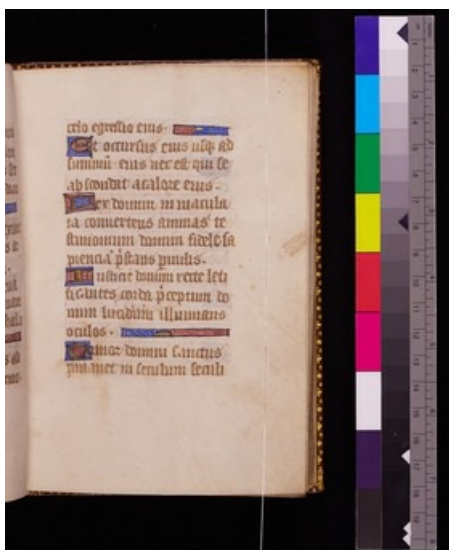 celo egressio eius.
Et occursus eius usq; ad
summū eius nec est qui se
abscondat a calore eius.
Lex domini in macula
ta conuertens animas te
stimonium domini fidele sa
piencia p̄stans paruulis.
Iusticie domini recte leti
ficantes corda p̄ceptum do
mini lucidum illuminans
oculos.
Timor domini sanctus
permanet in seculum seculi